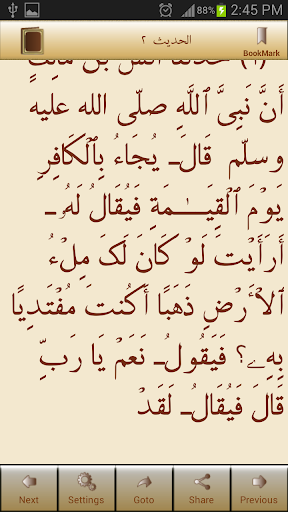 88% 2:45 PM
الحديث ٢
BookMark
أَنَّ نَبِىَّ ٱللَّهِ صلّى الله عليه
وسلّم قَالَ يُجَاءُ بِٱلۡكَافِرِ
يَوۡمَ ٱلۡقِيَـٰمَةِ فَيُقَالُ لَهُۥ
أَرَأَيۡتَ لَوۡ كَانَ لَكَ مِلۡءُ
ٱلۡأَرۡضِ ذَهَبًا أَكُنتَ مُفۡتَدِيًا
بِهِۦ؟ فَيَقُولُ نَعَمۡ يَا رَبِّ
قَالَ فَيُقَالُ لَقَدۡ
Next Settings Goto Share Previous